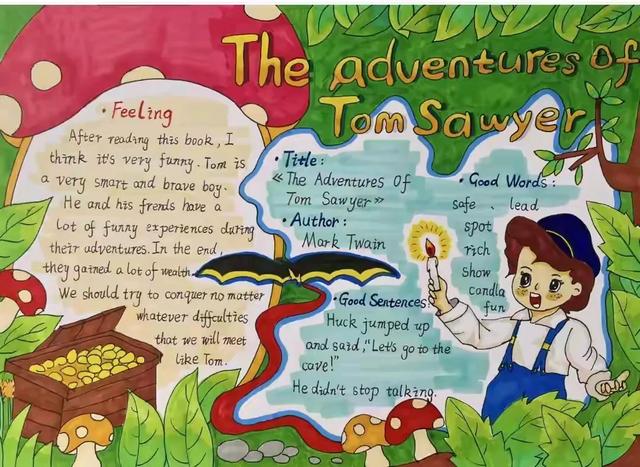 The adventures Of
Tom Sawyer
• Feeling
After reading this book, I
think it's very funny. Tom is
a very smart and brave boy.
He and his frends have a
lot of funny experiences during
their adventures. In the end,
they gained a lot of wealth.
We should try to conquer no matter
whatever difficulties
that we will meet
like Tom.
• Title:
《The Adventures Of
Tom Sawyer》
• Author:
Mark Twain
• Good Words:
safe、lead
spot
rich
show
candla
fun
• Good Sentences:
Huck jumped up
and said, "Let's go to the
cave!"
He didn't stop talking.